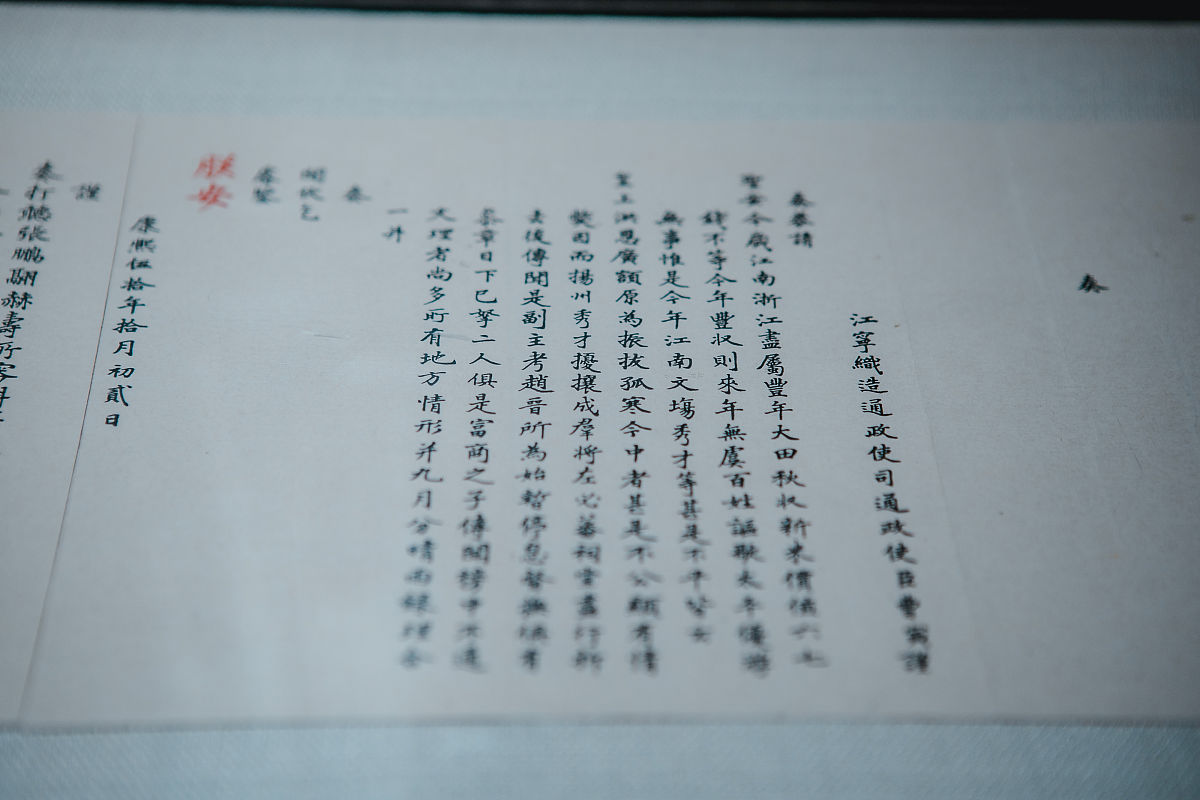 奏
江寧織造通政使司通政使臣曹寅謹
奏恭請
聖安今歲江南浙江盡屬豐年大田秋收新米價值六七
錢不等今年豐收則來年無虞百姓謳歌太平
無事惟是今年江南文塲秀才等甚是不平皆云
皇上洪恩廣額原為振拔孤寒今中者甚是不公顯有情
獘因而揚州秀才擾攘成羣將左必蕃祠堂盡行拆
去後傳聞是副主考趙晉所為始暫停息督撫
奏章目下已拏二人俱是富商之子傳聞榜中不通
文理者尚多所有地方情形并九月分晴雨錄理合
一并
奏
聞伏乞
睿鑒
朕安
康熙伍拾年拾月初貳日
謹
奏打聽張鵬翮赫壽所審科